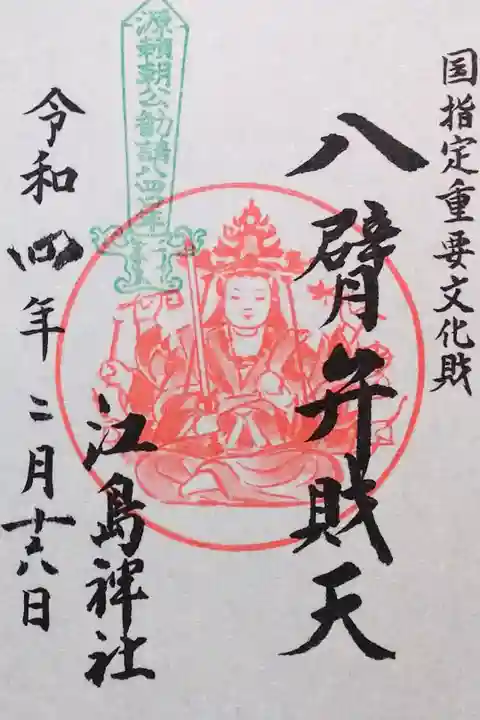 国指定重要文化財
八臂弁財天
源頼朝公勧請八四〇年
江島神社
令和四年二月十八日